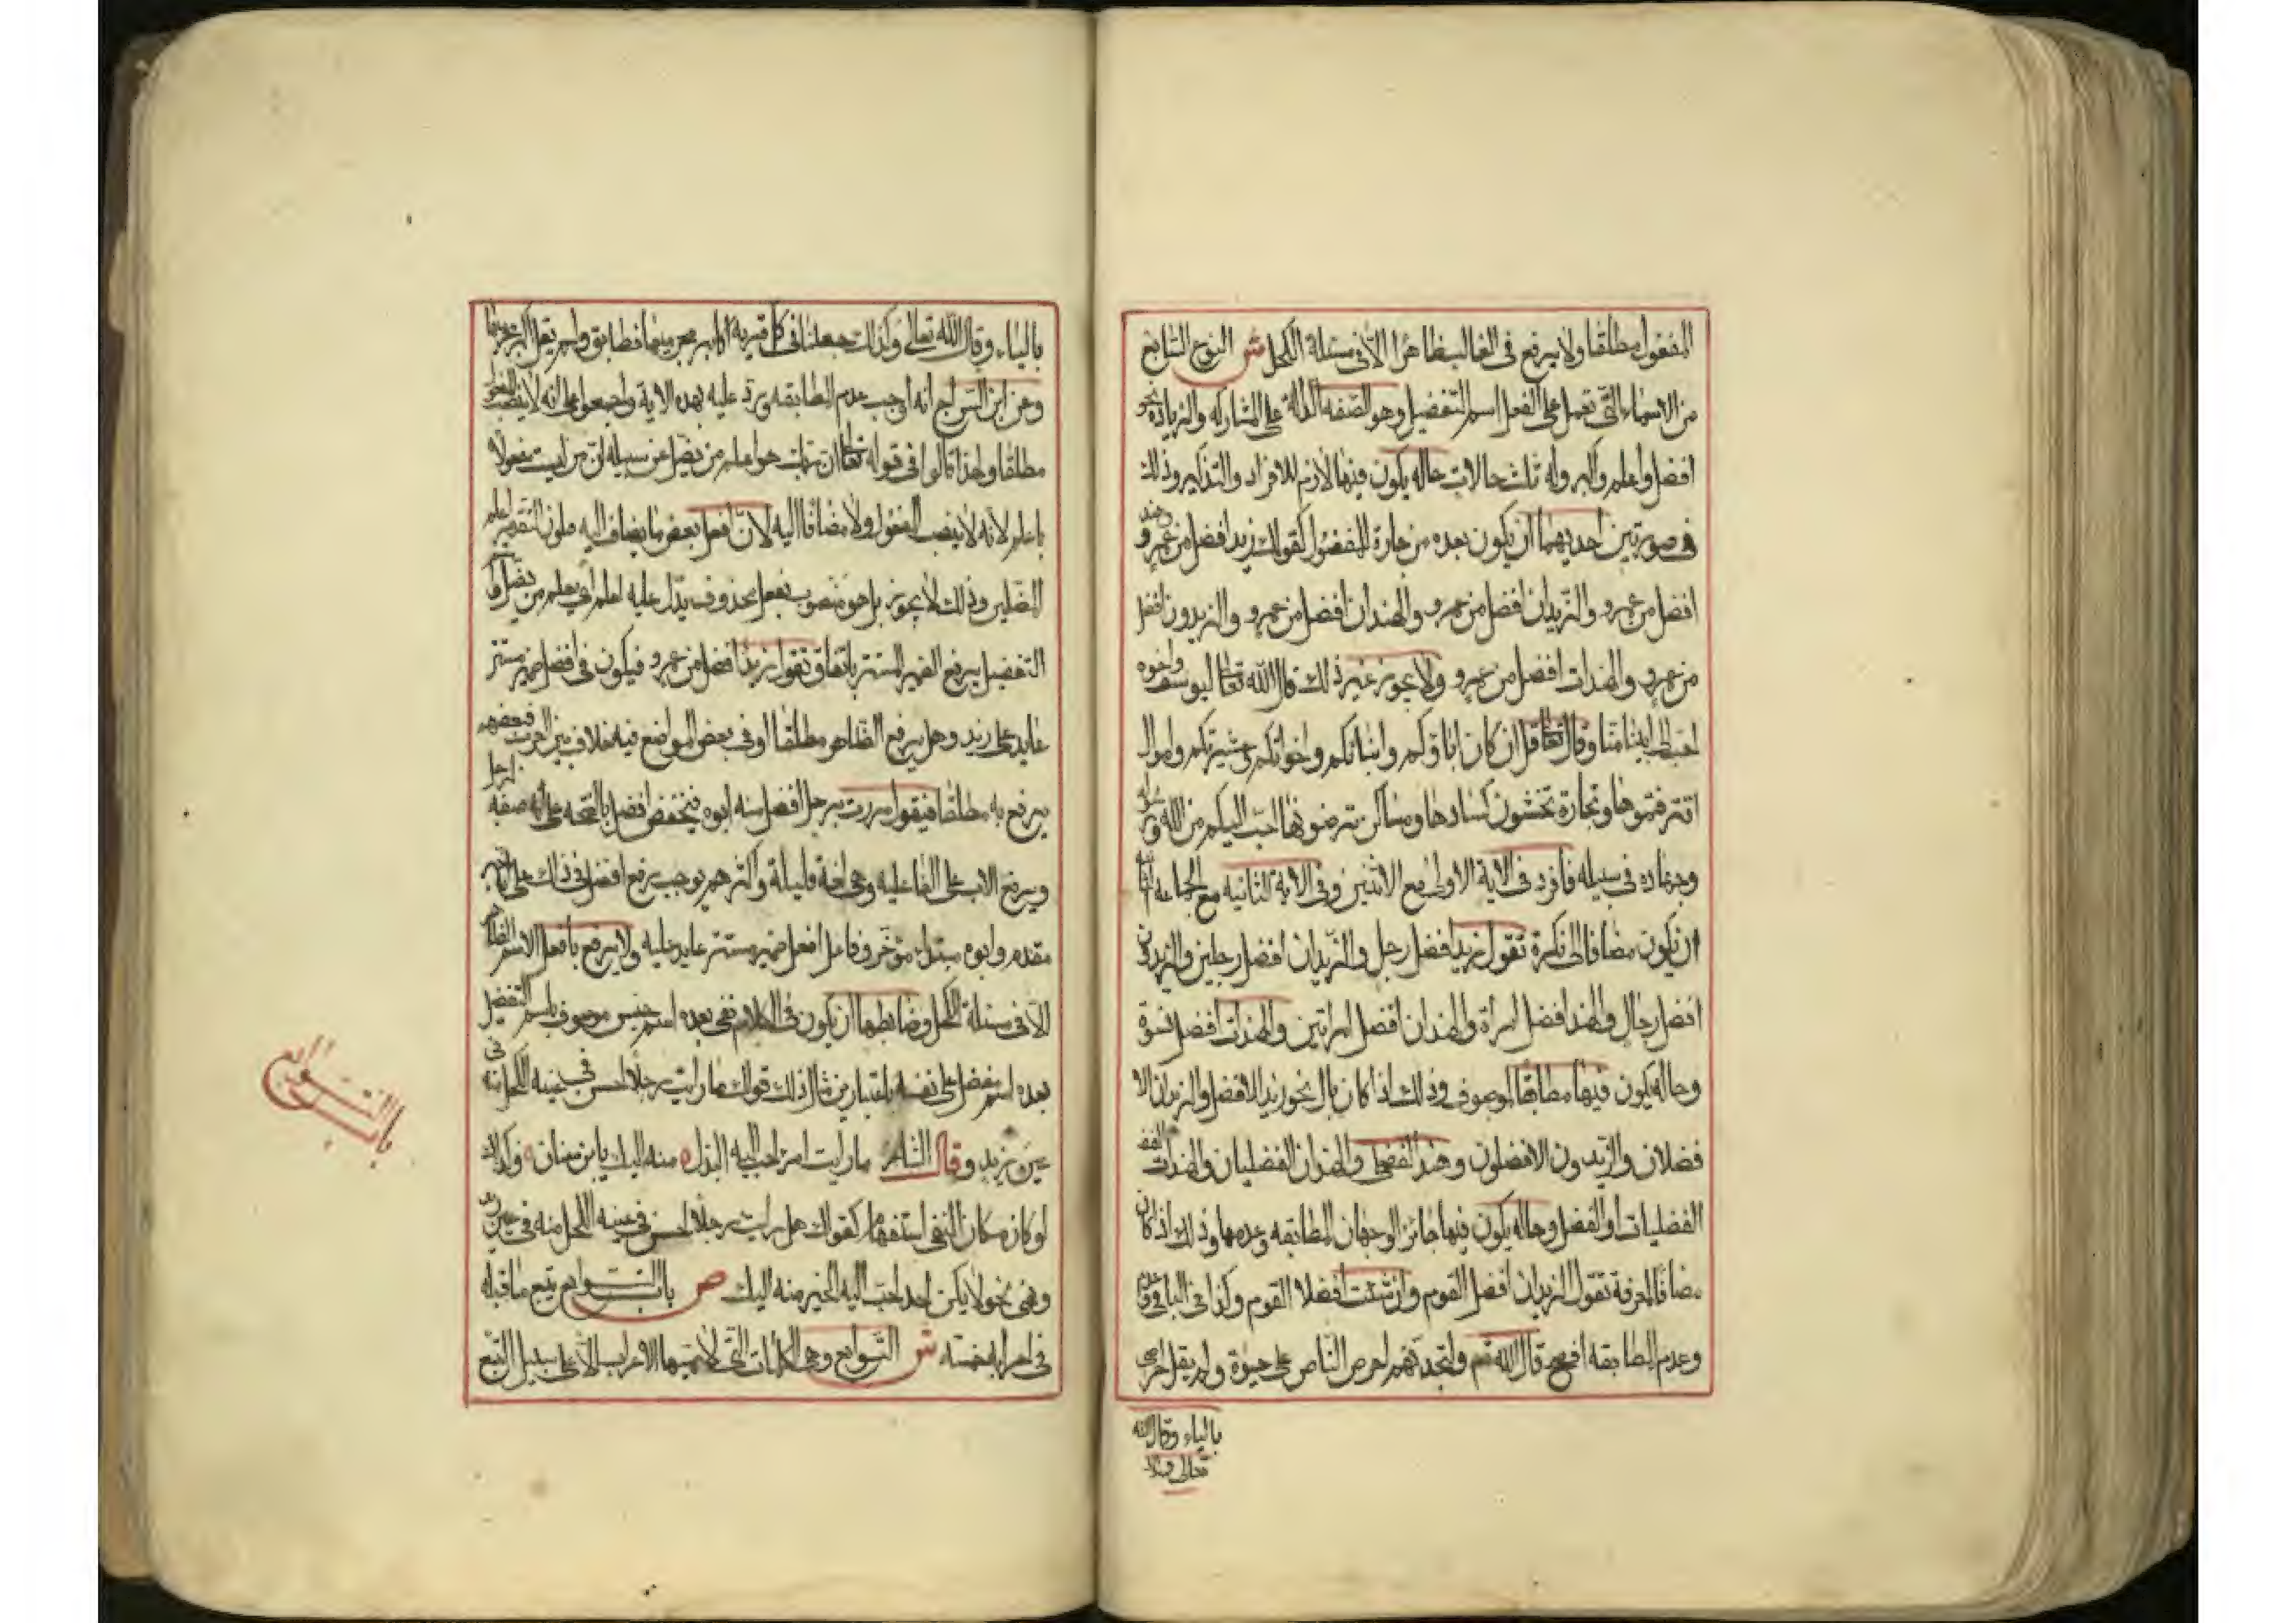 المفعول مطلقا ولا يرفع في الغالب ظاهرا الا في مسئلة الكحل ش النوع السابع
من الاسماء التي تعمل عمل الفعل اسم التفضيل وهو الصفه الدالة على المشاركه والزياده نحو
افضل واعلم واكبر وله ثلث حالات حاله يكون فيها لازم للافراد والتذكير وذلك
في صورتين احديهما ان يكون بعده من جارة للمفضول كقولك زيد افضل من عمرو وهند
افضل من عمرو والزيدان افضل من عمرو والهندان افضل من عمرو والزيدون افضل
من عمرو والهندات افضل من عمرو ولا يجوز غير ذلك قال الله تعالى ليوسف واخوه
احب الى ابينا منا وقال تعالى قل ان كان اباؤكم وابنائكم واخوانكم وعشيرتكم واموال
اقترفتموها وتجارة تخشون كسادها ومساكن ترضونها احب اليكم من الله ورسوله
وجهاد في سبيله فافرد في الاية الاولى مع الاثنين وفي الاية الثانيه مع الجماعه
ان يكون مضافا الى نكرة تقول زيد افضل رجل والزيدان افضل رجلين والزيدون
افضل رجال والهند افضل امراة والهندان افضل امراتين والهندات افضل نسوة
وحاله يكون فيها مطابقا لموصوفه وذلك اذا كان بال نحو زيد الافضل والزيدان الا
فضلان والزيدون الافضلون وهند الفضلى والهندان الفضليان والهندات
الفضليات او الفضل وحاله يكون فيها جائز الوجهان المطابقه وعدمها وذلك اذا كان
مضافا لمعرفة تقول الزيدان افضل القوم وان شئت افضلا القوم وكذا في الباقي وعدم
وعدم المطابقه افصح قال الله تعالى ولتجدنهم احرص الناس على حيوة ولم يقل احرصي
بالياء وقال الله
تعالى وكذ
بالياء وقال الله تعالى وكذلك جعلنا في كل قرية اكابر مجرميها فطابق ولم يقل اكبر مجرميها
وعن ابن السراج انه اوجب عدم المطابقه ورد عليه بهذه الاية واجمعوا على انه لا ينصب المفعول
مطلقا ولهذا قالوا في قوله تعالى ان ربك هو اعلم من يضل عن سبيله ان من ليست مفعولا
باعلم لانه لا ينصب المفعول ولا مضافا اليه لان افعل بعض ما يضاف اليه فيكون التقدير اعلم
المضلين وذلك لا يجوز بل هو منصوب بفعل محذوف يدل عليه اعلم اي يعلم من يضل واسم
التفضيل يرفع الضمير المستتر باتفاق تقول زيد افضل من عمرو فيكون في افضل ضمير مستتر
عايد على زيد وهل يرفع الظاهر مطلقا او في بعض المواضع فيه خلاف بين العرب فبعضهم
يرفع به مطلقا فيقول مررت برجل افضل منه ابوه فيخفض افضل بالفتحه على انه صفه لرجل
ويرفع الاب على الفاعليه وهي لغة قليلة واكثرهم يوجب رفع افضل في ذلك على انه خبر
مقدم وابوه مبتداء مؤخر وفاعل افعل ضمير مستتر عايد عليه ولا يرفع بافعل الاسم الظاهر
الا في مسئلة الكحل وضابطها ان يكون في الكلام نفى بعده اسم جنس موصوف باسم التفضيل
بعده اسم مفضل على نفسه باعتبارين مثال ذلك قولك ما رايت رجلا احسن في عينه الكحل منه في
عين زيد وقال الشاعر ما رايت امرا احب اليه البذل منه اليك يا ابن سنان وكذلك
لو كان مكان النفى استفهام كقولك هل رايت رجلا احسن في عينه الكحل منه في عين زيد
ونهى نحو لا يكن احد احب اليه الخير منه اليك ص باب التوابع يتبع ما قبله
في اعرابه خمسته ش التوابع وهي الكلمات التي لا يمسها الاعراب الا على سبيل التبع
باب التوابع